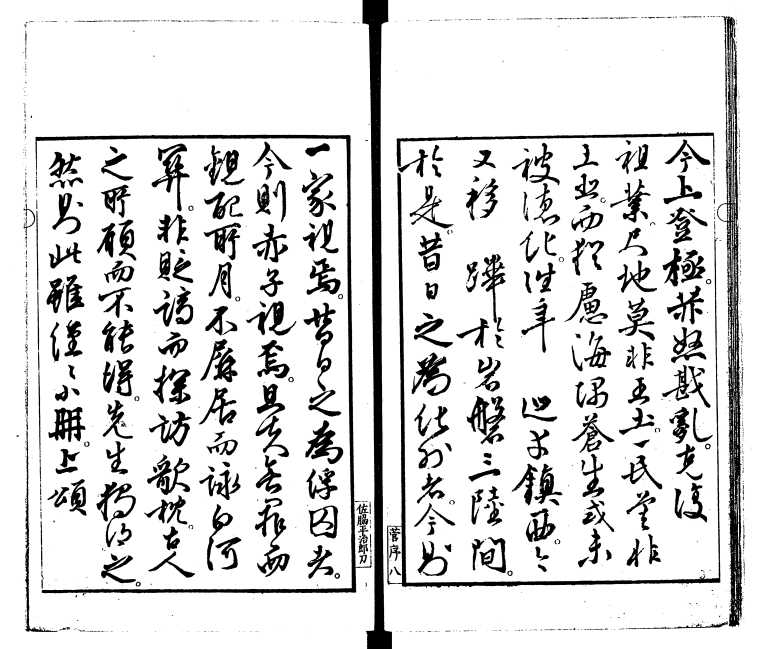 今上登極。赫怒戡亂。克復
祖業。尺地莫非王土。一民莫非
王臣。而猶慮海隅蒼生或未
被德化。往年　巡幸鎮西。今
又移　蹕於岩磐三陸間。
於是。昔日之為化外者。今則
一家視焉。昔日之為俘囚者。
今則赤子視焉。且夫無罪而
觀配所月。不屏居而詠白河
關。非貶謫而探訪歌枕。古人
之所願而不能得。先生獨得之。
然則此雖僅々小冊。上頌
菅序
八
佐脇平治郎刀